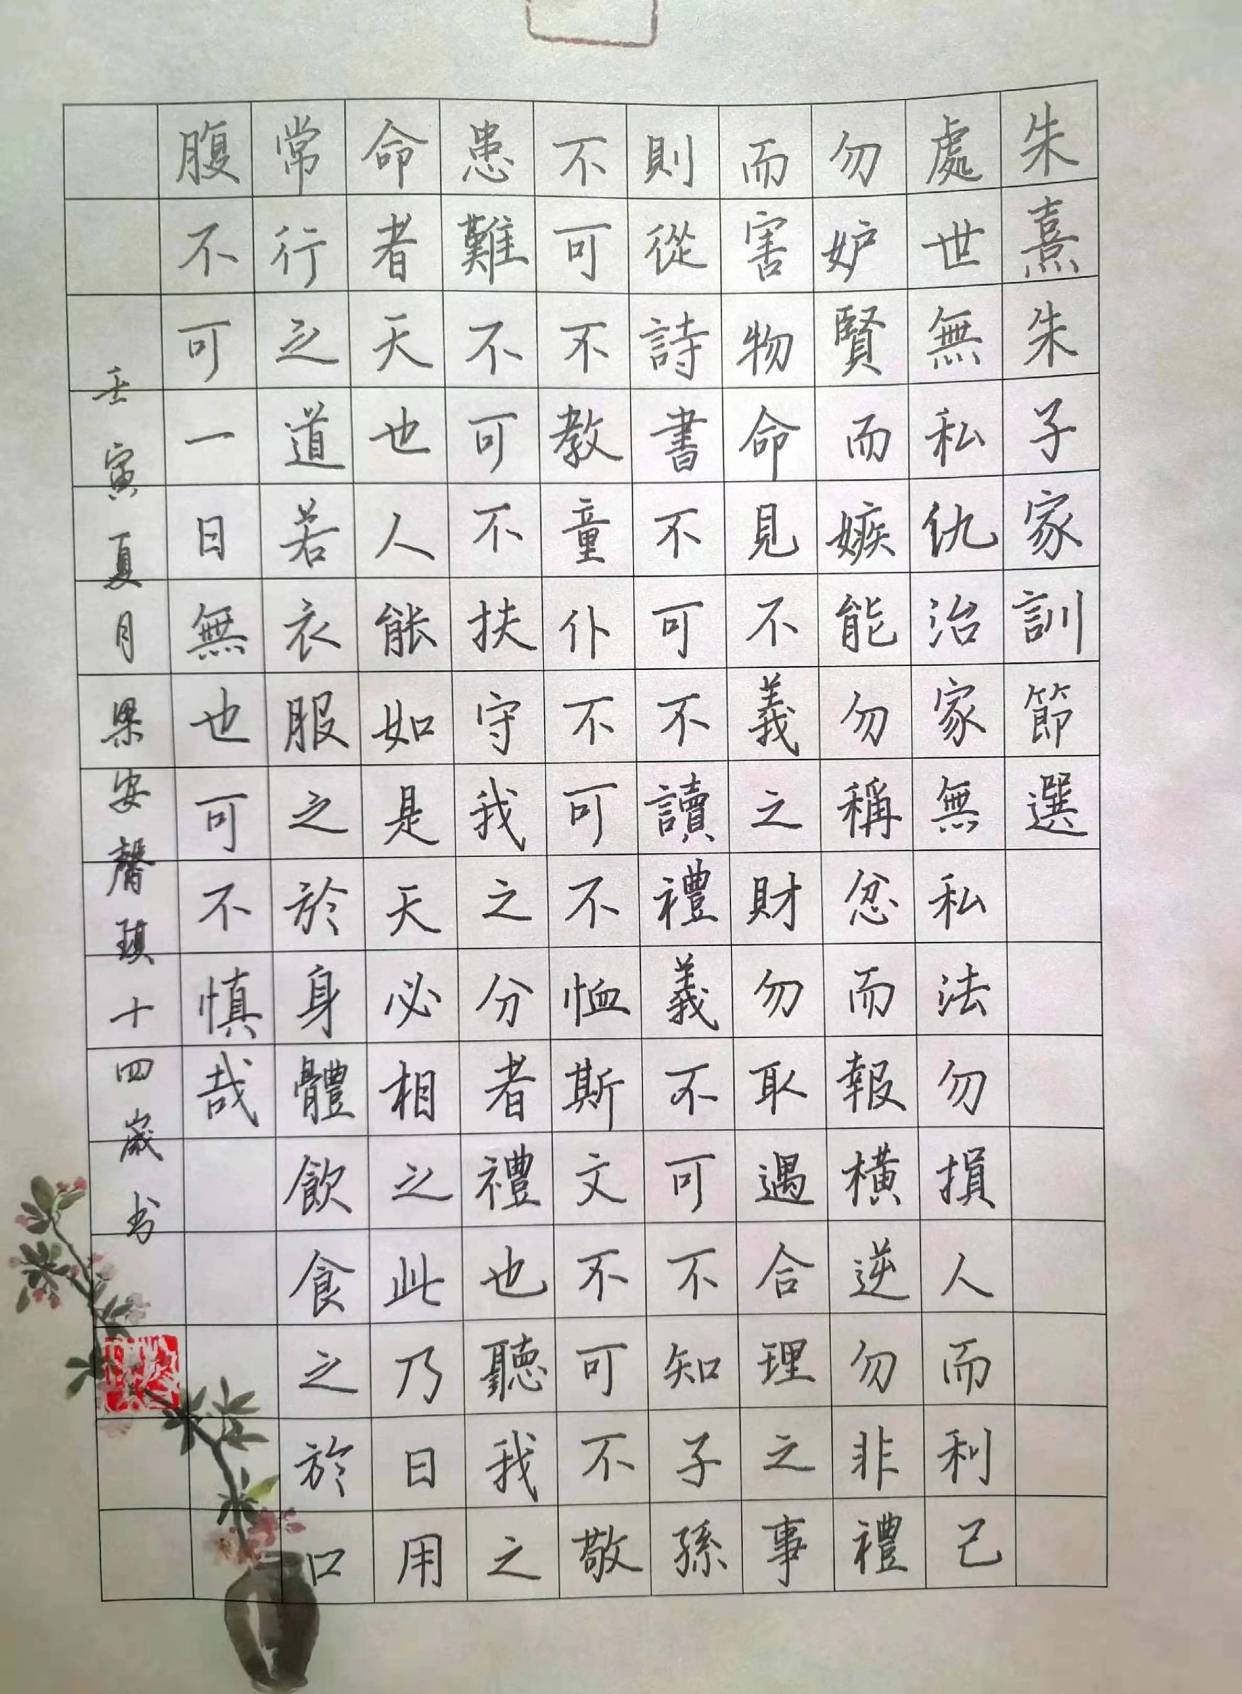 朱熹朱子家訓節選
處世無私仇治家無私法勿損人而利己
勿妒賢而嫉能勿稱忿而報橫逆勿非禮
而害物命見不義之財勿取遇合理之事
則從詩書不可不讀禮義不可不知子孫
不可不教童仆不可不恤斯文不可不敬
患難不可不扶守我之分者禮也聽我之
命者天也人能如是天必相之此乃日用
常行之道若衣服之於身體飲食之於口
腹不可一日無也可不慎哉
壬寅夏月梁安馨琪十四歲书